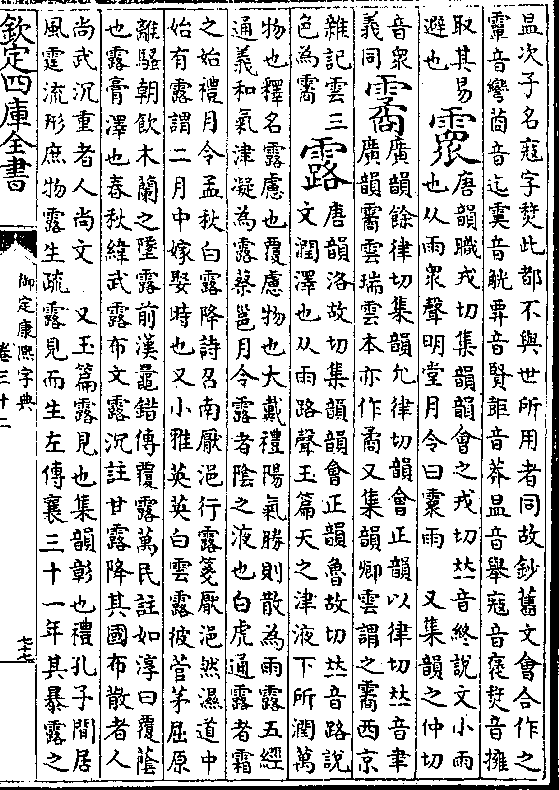 昷次子名䨣字焚此都不與世所用者同故鈔舊文會合作之
𩅦音彎𦶜音迄䨥音觥𧟨音賢䛗音莽昷音舉䨣音褒焚音擁
取其易避也
䨺
唐韻職戎切集韻韻會之戎切𠀤音終說文小雨
也从雨眾聲明堂月令曰䨺雨 又集韻之仲切
音衆義同
霱
廣韻餘律切集韻允律切韻會正韻以律切𠀤音聿
廣韻霱雲瑞雲本亦作矞又集韻卿雲謂之霱西京
雜記雲三色為霱
露
唐韻洛故切集韻韻會正韻魯故切𠀤音路說
文潤澤也从雨路聲玉篇天之津液下所潤萬
物也釋名露慮也覆慮物也大戴禮陽氣勝則散為雨露五經
通義和氣津凝為露蔡邕月令露者陰之液也白虎通露者霜
之始禮月令孟秋白露降詩召南厭浥行露箋厭浥然濕道中
始有露謂二月中嫁娶時也又小雅英英白雲露彼菅茅屈原
離騷朝飲木蘭之墜露前漢鼂錯傳覆露萬民註如淳曰覆蔭
也露膏澤也春秋緯武露布文露沉註甘露降其國布散者人
尚武沉重者人尚文 又玉篇露見也集韻彰也禮孔子閒居
風霆流形庶物露生疏露見而生左傳襄三十一年其暴露之
欽定四庫全書
御定康熙字典
卷三十二
七十七